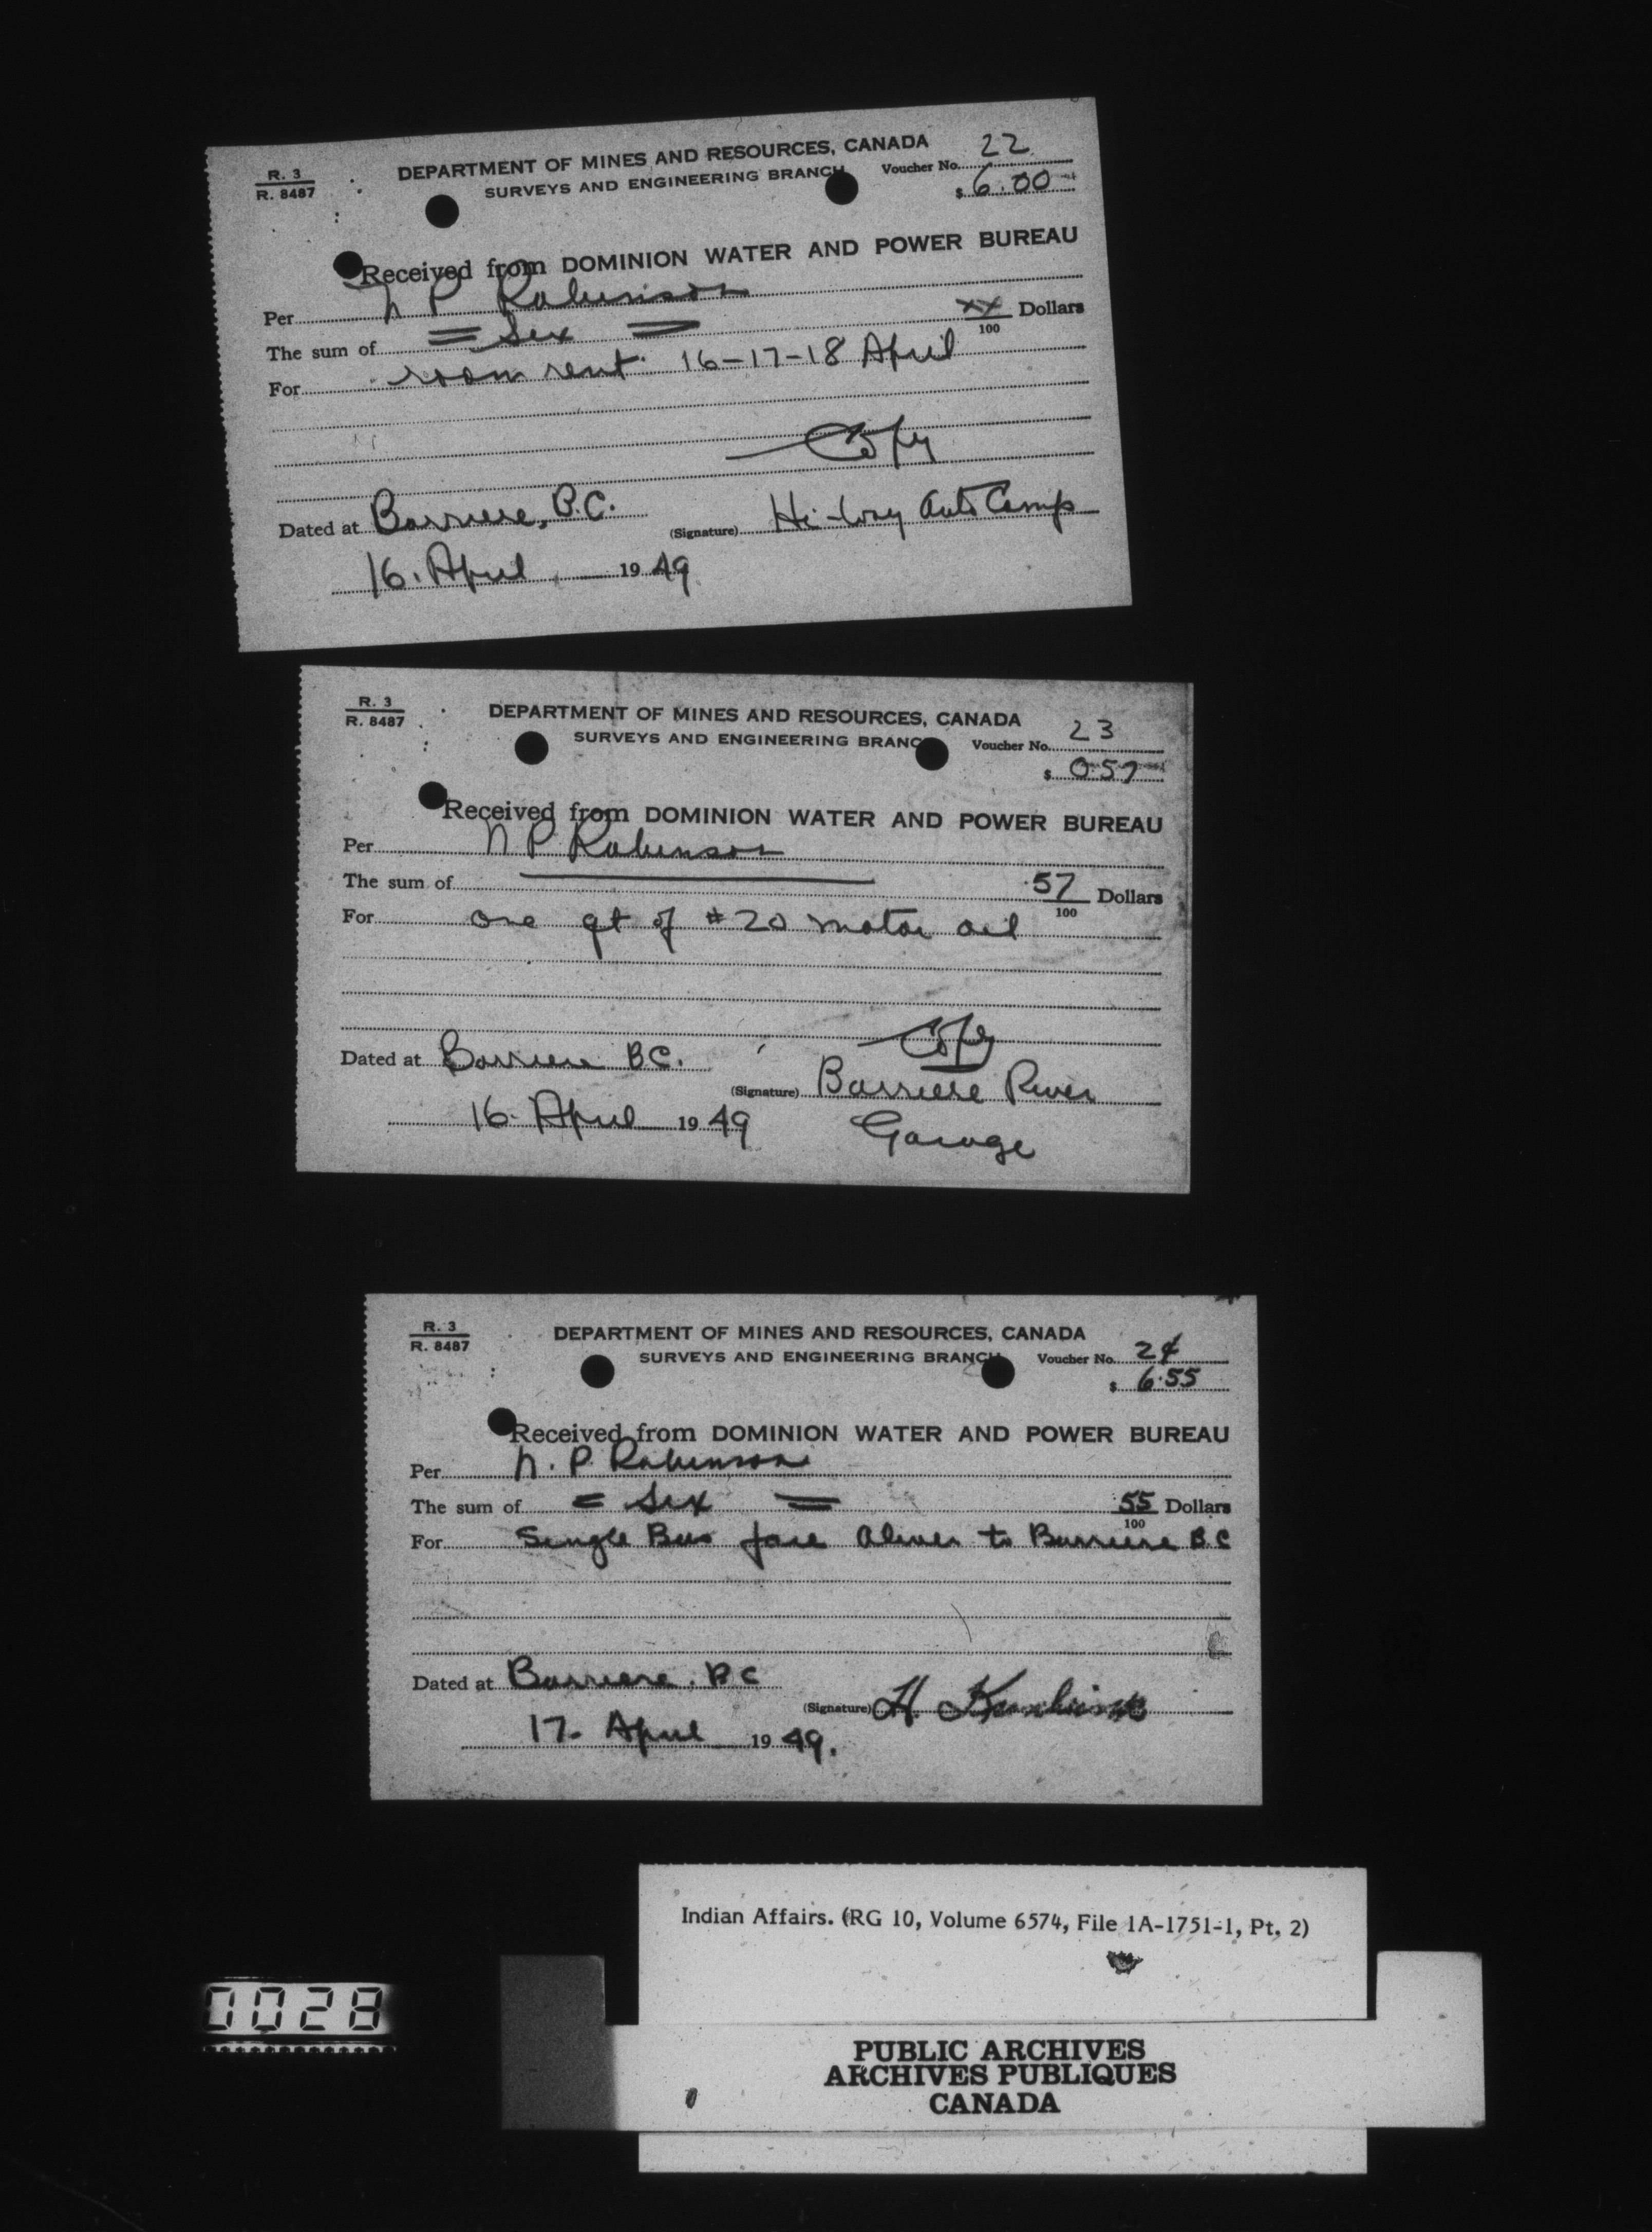 R. 3
R. 8487
DEPARTMENT OF MINES AND RESOURCES, CANADA
SURVEYS AND ENGINEERING BRANCH
Voucher No. 22
$ 6.00
Received from DOMINION WATER AND POWER BUREAU
Per N P Robinson
The sum of = Six = xx/100 Dollars
For room rent 16-17-18 April
Copy
Dated at Barriere, B.C.
(Signature) Hi-way Auto Camp
16. April 1949
R. 3
R. 8487
DEPARTMENT OF MINES AND RESOURCES, CANADA
SURVEYS AND ENGINEERING BRANC
Voucher No. 23
$ 0.57
Received from DOMINION WATER AND POWER BUREAU
Per N P Robinson
The sum of 57/100 Dollars
For one qt of #20 motor oil
Copy
Dated at Barriere BC.
(Signature) Barriere River
Garage
16. April 1949
R. 3
R. 8487
DEPARTMENT OF MINES AND RESOURCES, CANADA
SURVEYS AND ENGINEERING BRANCH
Voucher No. 24
$ 6.55
Received from DOMINION WATER AND POWER BUREAU
Per N. P. Robinson
The sum of = Six = 55/100 Dollars
For Single Bus fare Oliver to Barriere B.C
Dated at Barriere, BC
(Signature) H.
17. April 1949.
Indian Affairs. (RG 10, Volume 6574, File 1A-1751-1, Pt. 2)
0028
PUBLIC ARCHIVES
ARCHIVES PUBLIQUES
CANADA